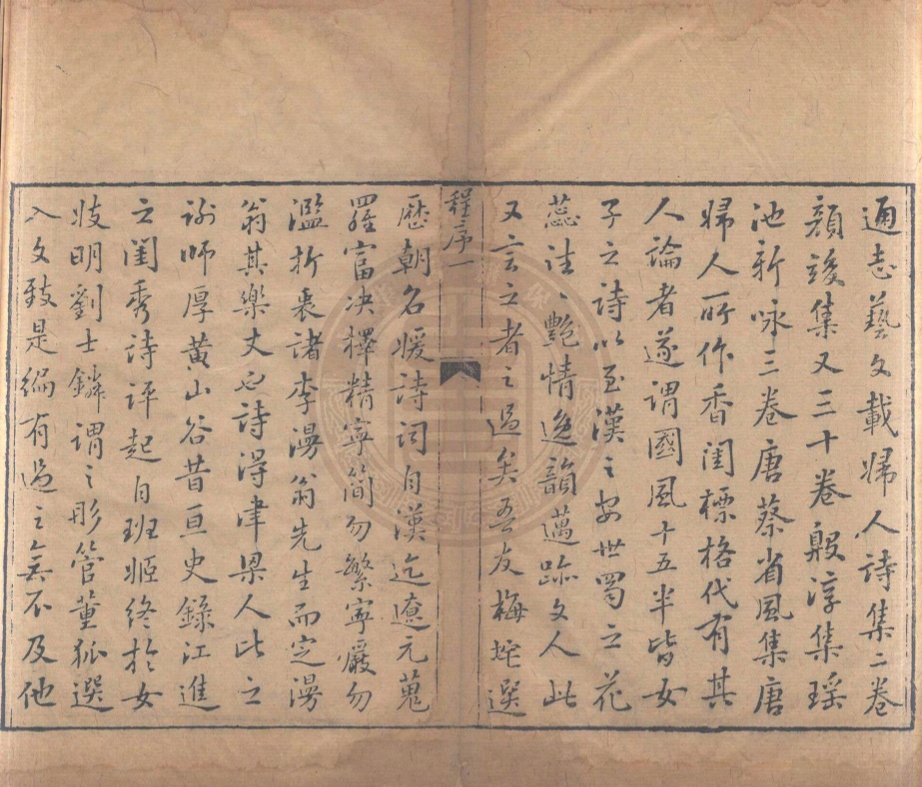 通志藝文載婦人詩集二卷
顔竣集又三十卷殷淳集瑶
池新咏三卷唐蔡省風集唐
婦人所作香闺標格代有其
人論者遂谓國風十五半皆女
子之詩以至漢之安世蜀之花
蕊往〻艷情逸韻邁跡文人此
又言之者之過矣吾友梅坨選
程序一
歷朝名媛詩词自漢迄遼元蒐
羅富决擇精寧简勿繁寧嚴勿
濫折衷諸李漫翁先生而定漫
翁其樂丈也詩得津梁人此之
谢師厚黄山谷昔亘史錄江進
之闺秀诗评起自班姬终於女
妓明劉士鏻谓之彤管董狐選
入文致是編有過之無不及他